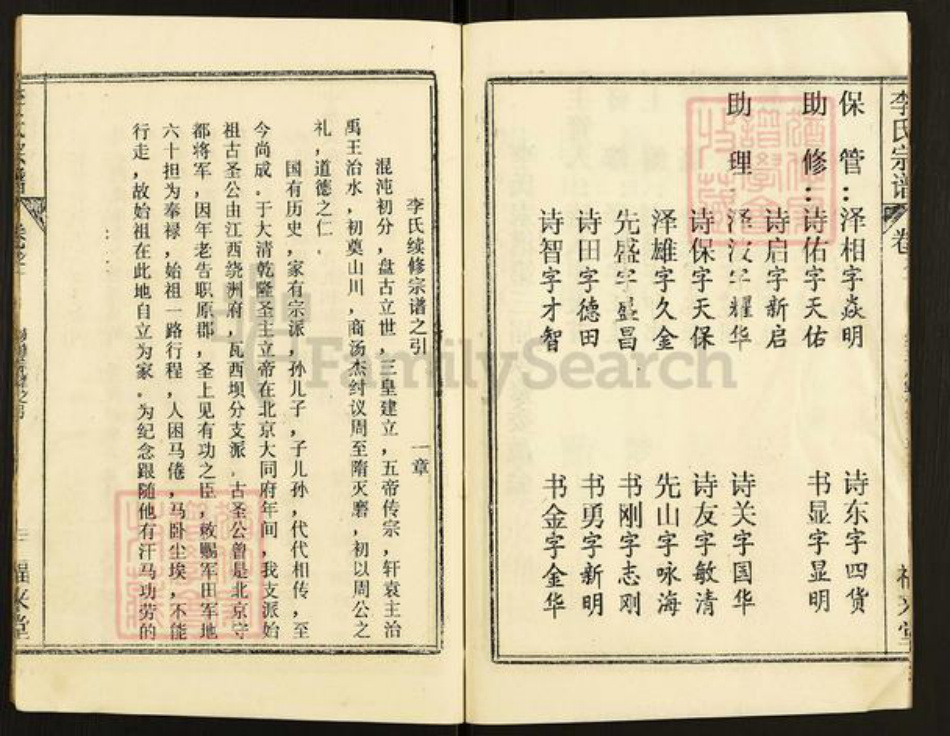 李氏宗谱
卷
保管：泽相字焱明
诗东字四货
助修：诗佑字天佑
书显字显明
诗启字新启
助理：泽汉字耀华
诗关字国华
诗保字天保
诗友字敏清
泽雄字久金
先山字咏海
先盛字盛昌
书刚字志刚
诗田字德田
书勇字新明
诗智字才智
书金字金华
李氏续修宗谱之引 一章
混沌初分，盘古立世，三皇建立，五帝传宗，轩袁主治
禹王治水，初奠山川，商汤杰纣议周至隋灭磨，初以周公之
礼，道德之仁．
国有历史，家有宗派，孙儿子，子儿孙，代代相传，至
今尚成。于大清乾隆圣主立帝在北京大同府年间，我支派始
祖古圣公由江西绕洲府，瓦西坝分支派．古圣公曾是北京守
都将军，因年老告职原郡，圣上见有功之臣，敕赐军田军地
六十担为奉禄，始祖一路行程，人困马倦，马卧尘埃，不能
行走，故始祖在此地自立为家。为纪念跟随他有汗马功劳的
三
FamilySearch